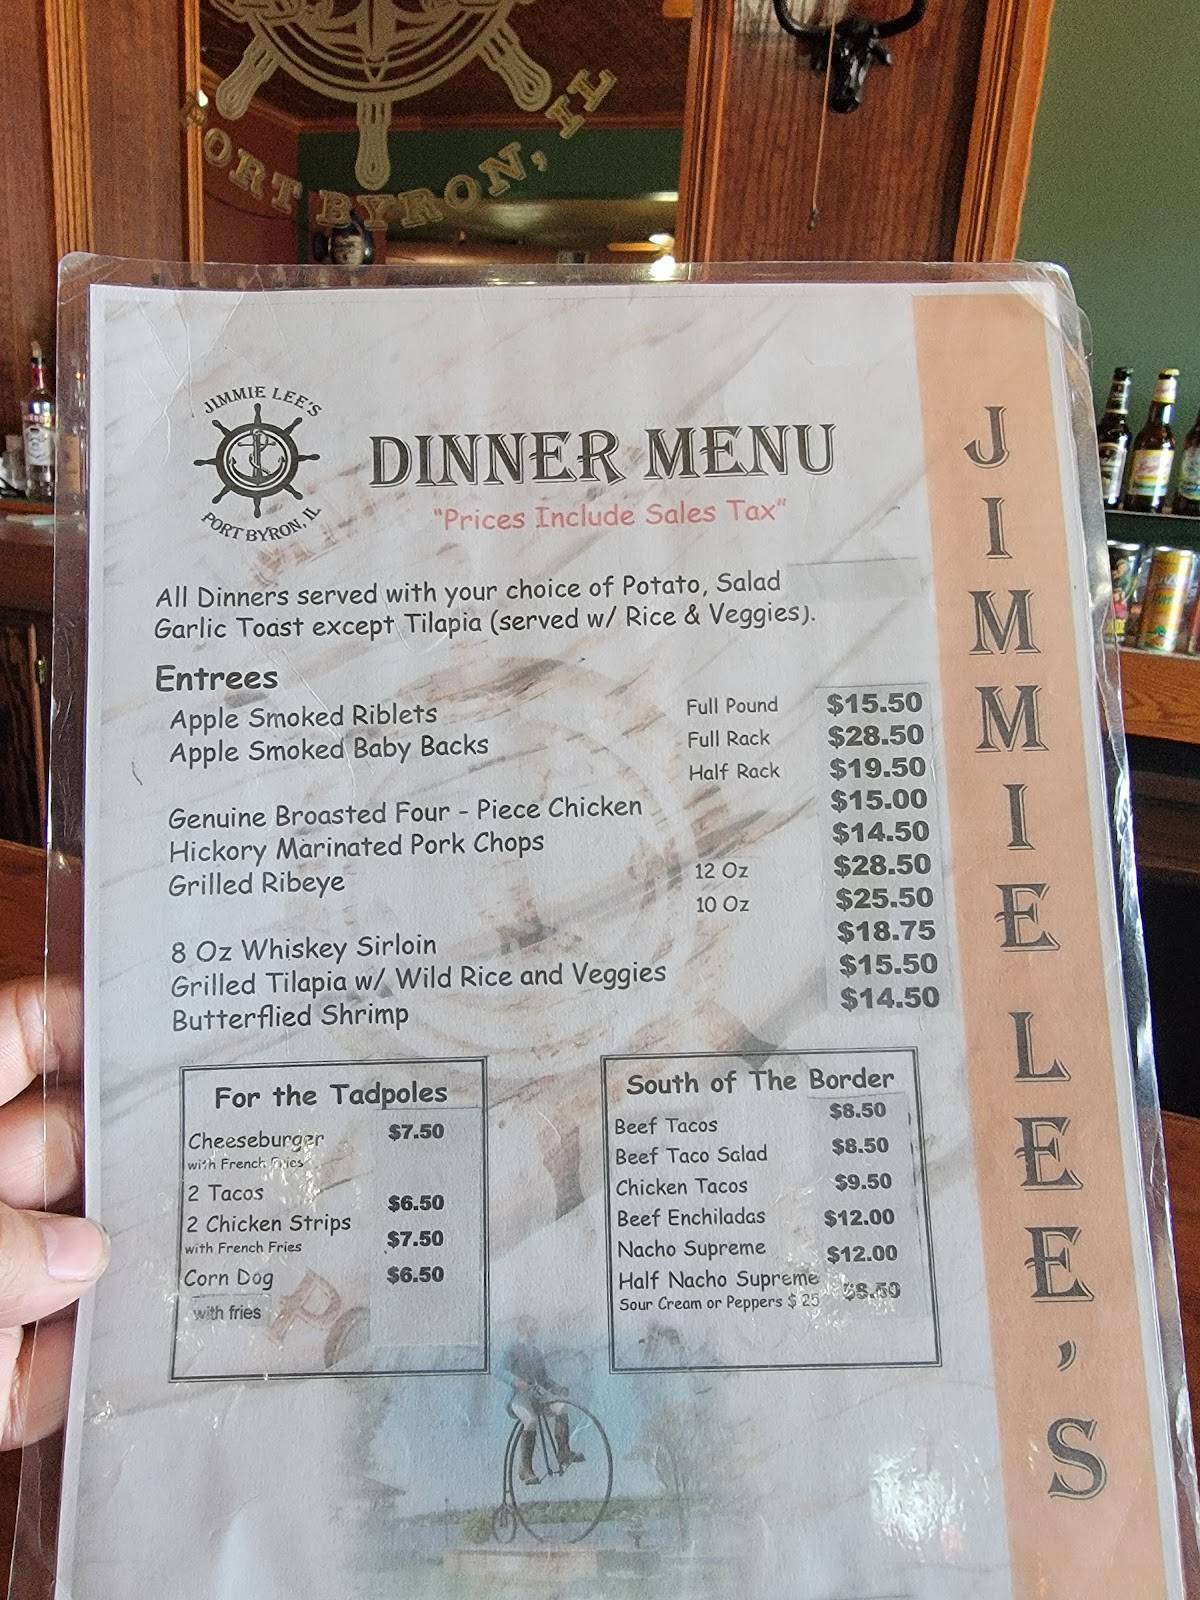 PORT BYRON, IL
JIMMIE LEE'S
PORT BYRON, IL
DINNER MENU
"Prices Include Sales Tax"
All Dinners served with your choice of Potato, Salad
Garlic Toast except Tilapia (served w/ Rice & Veggies).
Entrees
Apple Smoked Riblets Full Pound $15.50
Apple Smoked Baby Backs Full Rack $28.50
Half Rack $19.50
Genuine Broasted Four - Piece Chicken $15.00
Hickory Marinated Pork Chops $14.50
Grilled Ribeye 12 Oz $28.50
10 Oz $25.50
8 Oz Whiskey Sirloin $18.75
Grilled Tilapia w/ Wild Rice and Veggies $15.50
Butterflied Shrimp $14.50
For the Tadpoles
Cheeseburger $7.50
with French Fries
2 Tacos $6.50
2 Chicken Strips $7.50
with French Fries
Corn Dog $6.50
with fries
South of The Border
Beef Tacos $8.50
Beef Taco Salad $8.50
Chicken Tacos $9.50
Beef Enchiladas $12.00
Nacho Supreme $12.00
Half Nacho Supreme $8.50
Sour Cream or Peppers $ 25
JIMMIE LEE'S